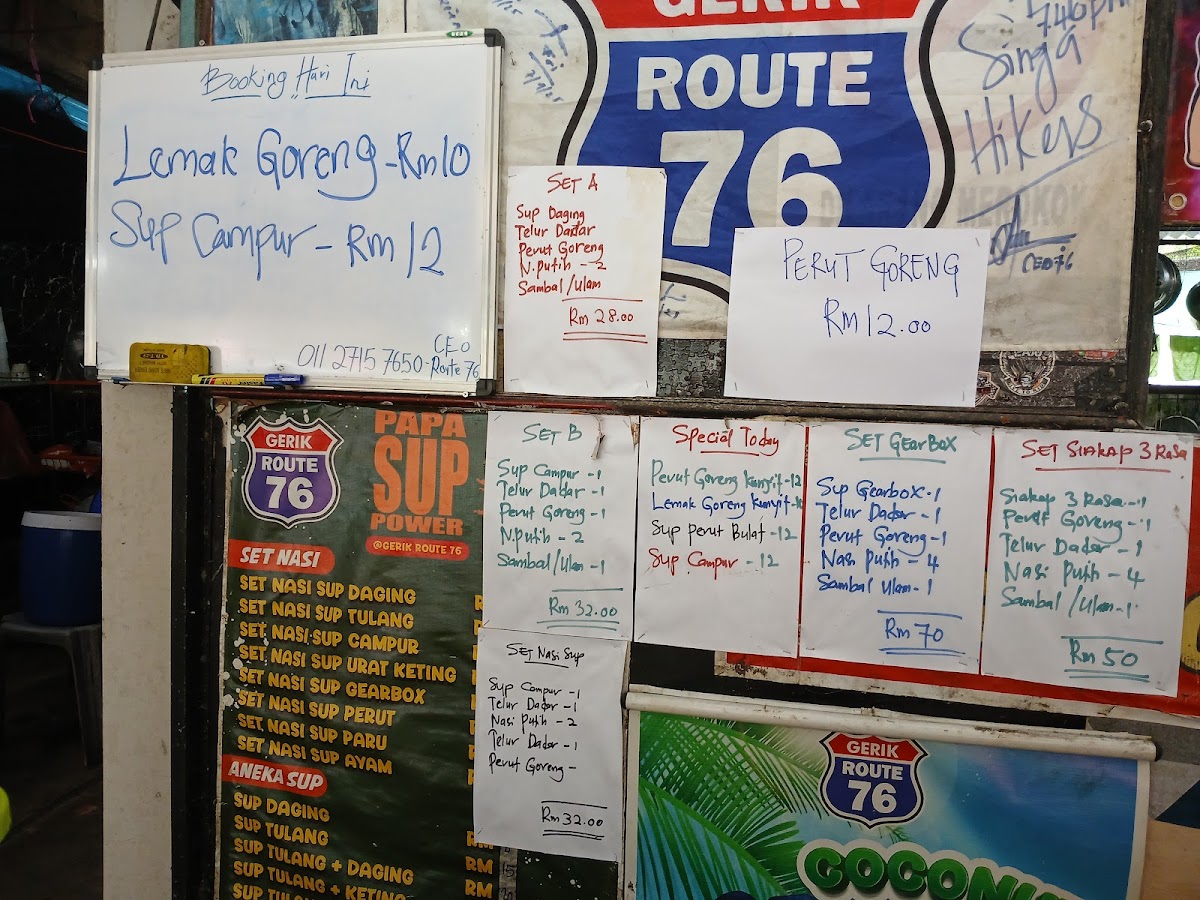 Booking Hari Ini
Lemak Goreng - Rm10
Sup Campur - Rm 12
011 2715 7650 - CEO
Route 76
GERIK
ROUTE
76
746pm
Singa
Hikers
CEO 76
SET A
Sup Daging
Telur Dadar
Perut Goreng
N.putih - 2
Sambal/ulam
Rm 28.00
PERUT GORENG
Rm12.00
GERIK
ROUTE
76
PAPA
SUP
POWER
@GERIK ROUTE 76
SET NASI
SET NASI SUP DAGING
SET NASI SUP TULANG
SET NASI SUP CAMPUR
SET NASI SUP URAT KETING
SET NASI SUP GEARBOX
SET NASI SUP PERUT
SET NASI SUP PARU
SET NASI SUP AYAM
ANEKA SUP
SUP DAGING
SUP TULANG RM
SUP TULANG + DAGING RM
SUP TULANG + KETING RM
SET B
Sup Campur - 1
Telur Dadar - 1
Perut Goreng - 1
N.Putih - 2
Sambal/Ulam - 1
Rm 32.00
SET Nasi Sup
Sup Campur - 1
Telur Dadar - 1
Nasi Putih - 2
Telur Dadar - 1
Perut Goreng -
Rm 32.00
Special Today
Perut Goreng Kunyit - 12
Lemak Goreng Kunyit -
Sup Perut Bulat - 12
Sup Campur - 12
SET GearBox
Sup Gearbox - 1
Telur Dadar - 1
Perut Goreng - 1
Nasi Putih - 4
Sambal Ulam - 1
Rm 70
SET SIAKAP 3 RaSa
Siakap 3 Rasa - 1
Perut Goreng - 1
Telur Dadar - 1
Nasi Putih - 4
Sambal /Ulam - 1
Rm 50
GERIK
ROUTE
76